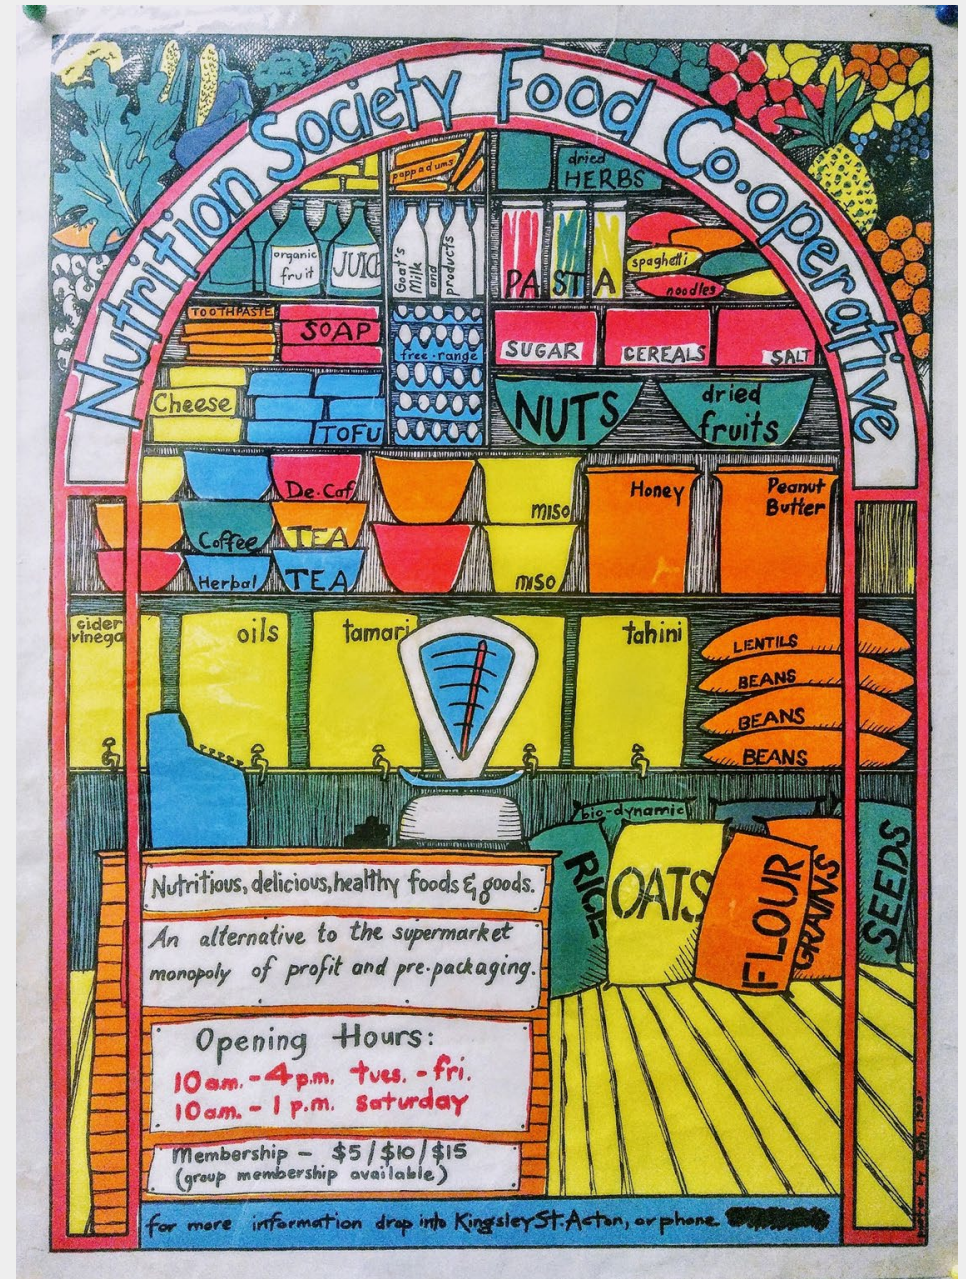 Nutrition Society Food Co-operative
poppadums
dried
HERBS
organic
fruit
JUICE
Goat's
milk
and
products
PASTA
spaghetti
noodles
TOOTHPASTE
SOAP
free-range
SUGAR
CEREALS
SALT
Cheese
TOFU
NUTS
dried
fruits
De-Caf
Coffee
TEA
Herbal
TEA
miso
miso
Honey
Peanut
Butter
cider
vinega
oils
tamari
tahini
LENTILS
BEANS
BEANS
BEANS
bio-dynamic
RICE
OATS
FLOUR
GRAINS
SEEDS
Nutritious, delicious, healthy foods & goods.
An alternative to the supermarket
monopoly of profit and pre-packaging.
Opening Hours:
10am. - 4p.m. tues. - fri.
10am. - 1p.m. saturday
Membership - $5/$10/$15
(group membership available)
for more information drop into Kingsley St. Acton, or phone